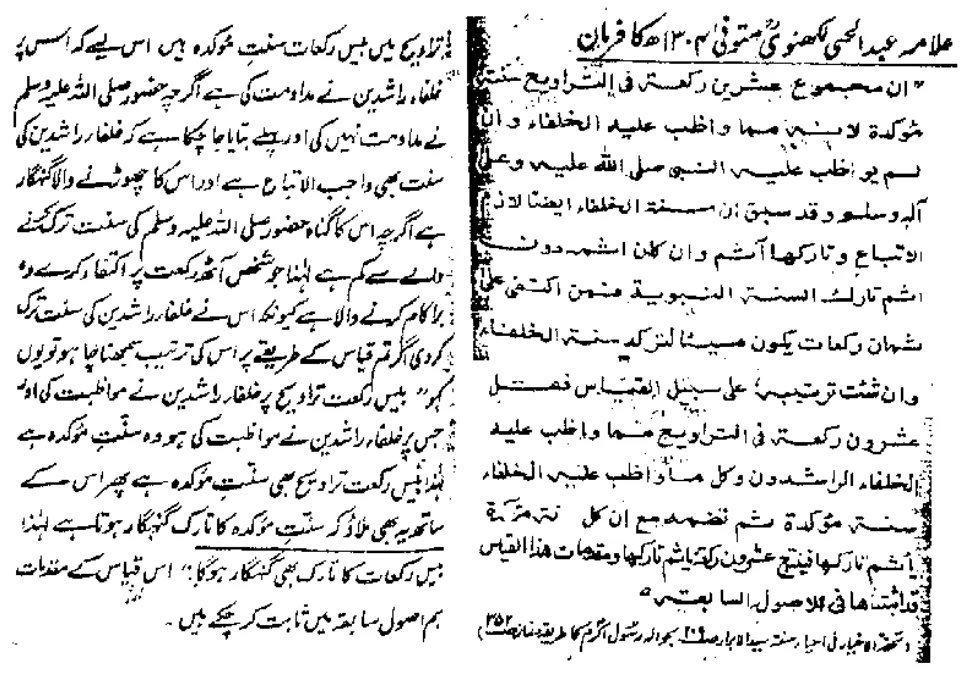 علامہ عبدالحی لکھنویؒ متوفی ۱۳۰۴ھ کا فرمان
" ان مجموع عشرین رکعة فی التراویح سنة
مؤکدة لانه مما واظب علیه الخلفاء وان
لم یواظب علیه النبی صلی الله علیه وعلی
آله وسلم وقد سبق ان سنة الخلفاء ایضا لازم
الاتباع وتارکها آثم وان کان اثمه دون
اثم تارک السنة النبویة فمن اکتفی علی
ثمان رکعات یکون مسیئا لترکه سنة الخلفاء
وان شئت ترتیبه علی سبیل القیاس فقل
عشرون رکعة فی التراویح مما واظب علیه
الخلفاء الراشدون وکل ما واظب علیه الخلفاء
سنة مؤکدة ثم نضمه مع ان کل سنة مؤکدة
یأثم تارکها فینتج عشرون رکعة یاثم تارکها ومقدمات هذا القیاس
قد اثبتناها فی الاصول السابقة "
(تحفة الاخیار فی احیاء سنة سید الابرار صفحہ ۲۰۹ بحوالہ رسول اکرم کا طریقہ نماز صفحہ ۲۵۲)
تراویح میں بیس رکعات سنت مؤکدہ ہیں اس لیے کہ اس پر
خلفاء راشدین نے مداومت کی ہے اگرچہ حضور صلی اللہ علیہ وسلم
نے مداومت نہیں کی اور پہلے بتایا جا چکا ہے کہ خلفاء راشدین کی
سنت بھی واجب الاتباع ہے اور اس کا چھوڑنے والا گنہگار
ہے اگرچہ اس کا گناہ حضور صلی اللہ علیہ وسلم کی سنت ترک کرنے
والے سے کم ہے لہٰذا جو شخص آٹھ رکعت پر اکتفاء کرے وہ
برا کام کرنے والا ہے کیونکہ اس نے خلفاء راشدین کی سنت ترک
کر دی اگر تم قیاس کے طریقے پر اس کی ترتیب سمجھنا چاہو تو یوں
کہو " بیس رکعت تراویح پر خلفاء راشدین نے مواظبت کی اور
جس پر خلفاء راشدین نے مواظبت کی ہو وہ سنت مؤکدہ ہے
لہٰذا بیس رکعت تراویح بھی سنت مؤکدہ ہے پھر اس کے
ساتھ یہ بھی ملاؤ کہ سنت مؤکدہ کا تارک گنہگار ہوتا ہے لہٰذا
بیس رکعات کا تارک بھی گنہگار ہوگا " اس قیاس کے مقدمات
ہم اصول سابقہ میں ثابت کر چکے ہیں ۔